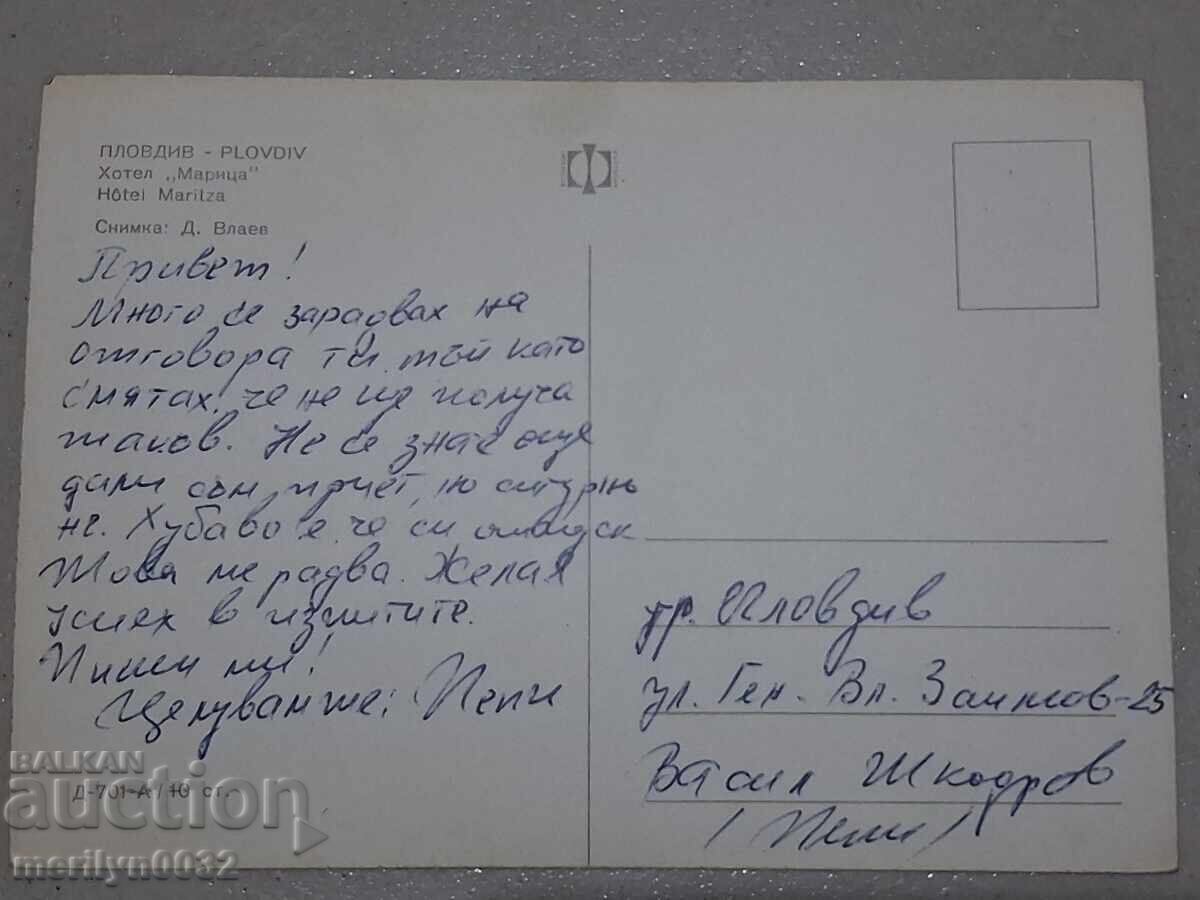 ПЛОВДИВ - PLOVDIV
Хотел „Марица"
Hôtel Maritza
Снимка: Д. Влаев
Привет!
Много се зарадвах на
отговора ти, тъй като
смятах, че не ще получа
такъв. Не се знае още
дали съм приет, но сигурно
не. Хубаво е, че си отпуск
Това ме радва. Желая
успех в изпитите.
Пиши ми!
Целувам те; Пепи
Д-701-А / 10 ст.
гр. Пловдив
ул. Ген. Вл. Заимов-25
Васил Шкодров
/ Пепи /
BALKAN
auction
merilyn0032